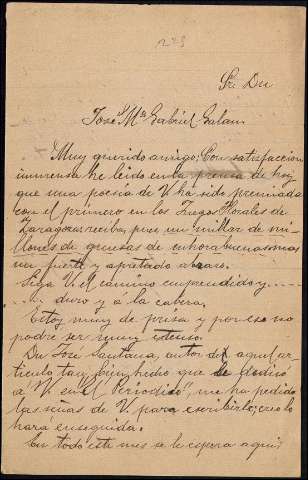 279
Sr. Dn
José Mª Gabriel Galan
Muy querido amigo: Con satisfaccion
inmensa he leido en la prensa de hoy
que una poesía de V ha sido premiada
con el primero en los Juegos Florales de
Zaragoza reciba, pues un millar de mi-
llones de gruesas de enhorabuenas mas
un fuerte y apretado abrazo.
Siga V. el camino emprendido y.....
..... duro y a la cabeza.
Estoy muy de prisa y por eso no
podré ser muy estenso.
Dn José Santana, autor del aquel ar-
ticulo tan bien hecho que le dedicó
a V en "El Periodico", me ha pedido
las señas de V. para escribirle; creo lo
hará enseguida.
En todo este mes se le espera aquí?